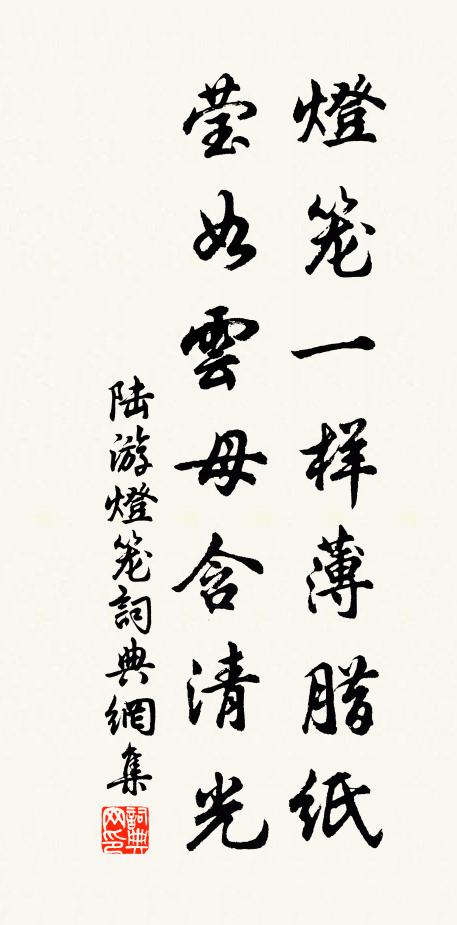 燈笼一样薄腊紙
莹如雲母含清光
陆游燈笼詞典網集
詞典网印